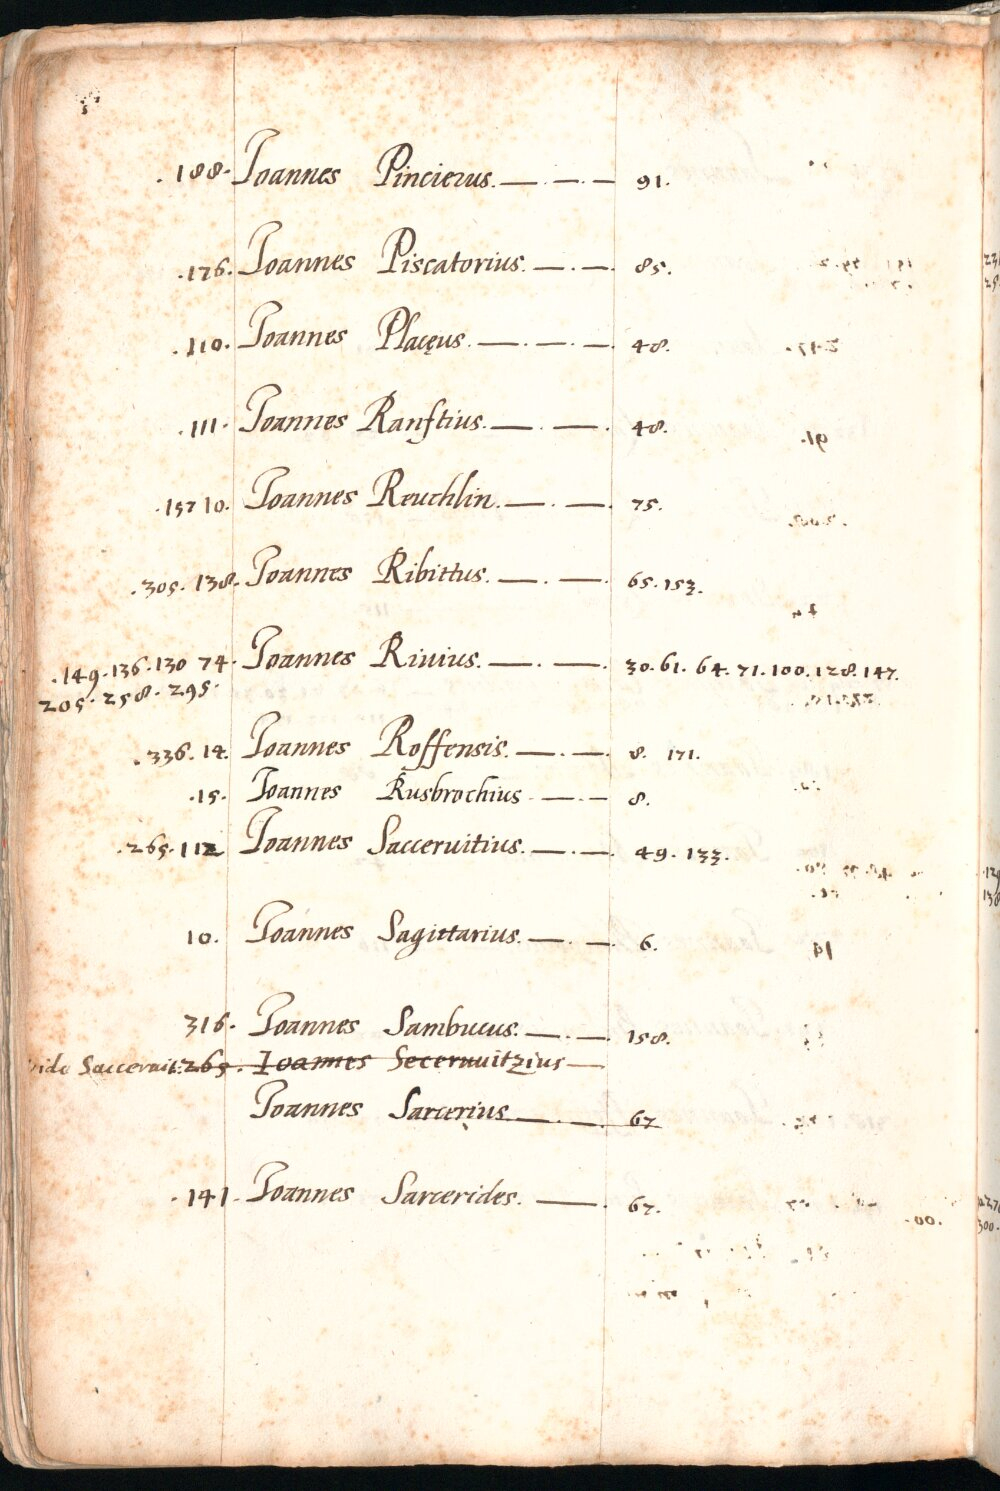 .188. Ioannes Pincierus. — . — . — 91.
.176. Ioannes Piscatorius. — . — . 85.
.110. Ioannes Placęus. — . — . — . 48.
.111. Ioannes Ranftius. — . — . 48.
.157 10. Ioannes Reuchlin. — . — . 75.
.305. 138. Ioannes Ribittus. — . — . 65. 153.
.149. 136. 130 74. Ioannes Riuius. — . — . 30. 61. 64. 71. 100. 128. 147.
205. 258. 295.
.336. 14. Ioannes Roffensis. — . — . 8. 171.
.15. Ioannes Rusbrochius . — . — 8.
.265. 112 Ioannes Sacceruitius. — . — . 49. 133.
10. Ioannes Sagittarius. — . — . 6.
316. Ioannes Sambucus. — . — . 158.
vide Sacceruit: 265. Ioannes Seceruuitzius —
Ioannes Sarcerius — . — . 67
.141. Ioannes Sarcerides. — . 67.